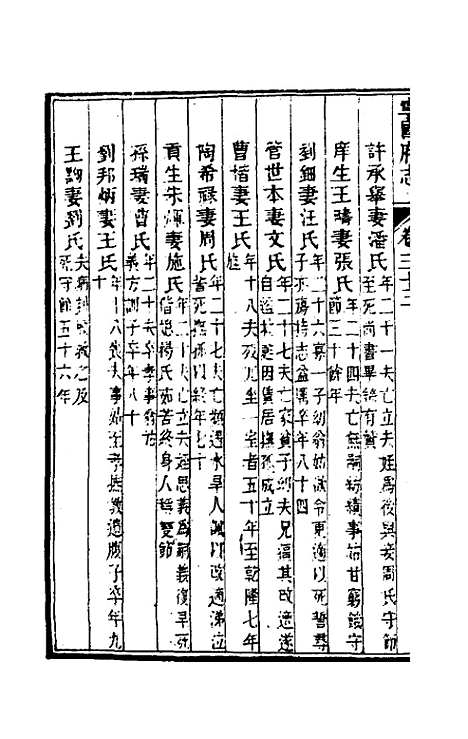 寧國府志 卷三十三
許承舉妻潘氏年二十一夫亡立夫姪爲後與妾周氏守節
至死尚書畢鏘有贊
庠生王壽妻張氏年二十四夫亡無嗣紡績事姑甘窮餓守
節三十餘年
劉鈿妻汪氏年二十六寡一子幼翁姑諷令更適以死誓尋
子亦殤持志益堅卒年八十四
管世本妻文氏年二十七夫亡家貧子幼夫兄逼其改適遂
自縊姑救更因貨居撫孤成立
曹楷妻王氏年十八夫死兀坐一室者五十年至乾隆七年
旌
陶希祿妻周氏年二十七夫亡水旱人諷以改適涕泣
誓死撫孫以終年七十
貢生朱妻施氏年二十夫亡立夫姪思義爲嗣義復早死
偕媳楊氏茹苦終身人稱雙節
孫瑞妻曹氏年二十夫卒孝事翁姑
義方訓子卒年八十
劉邦炳妻王氏年二十八喪夫事姑至孝撫教遺腹子卒年九
十
王妻劉氏夫病
死守節五十六年